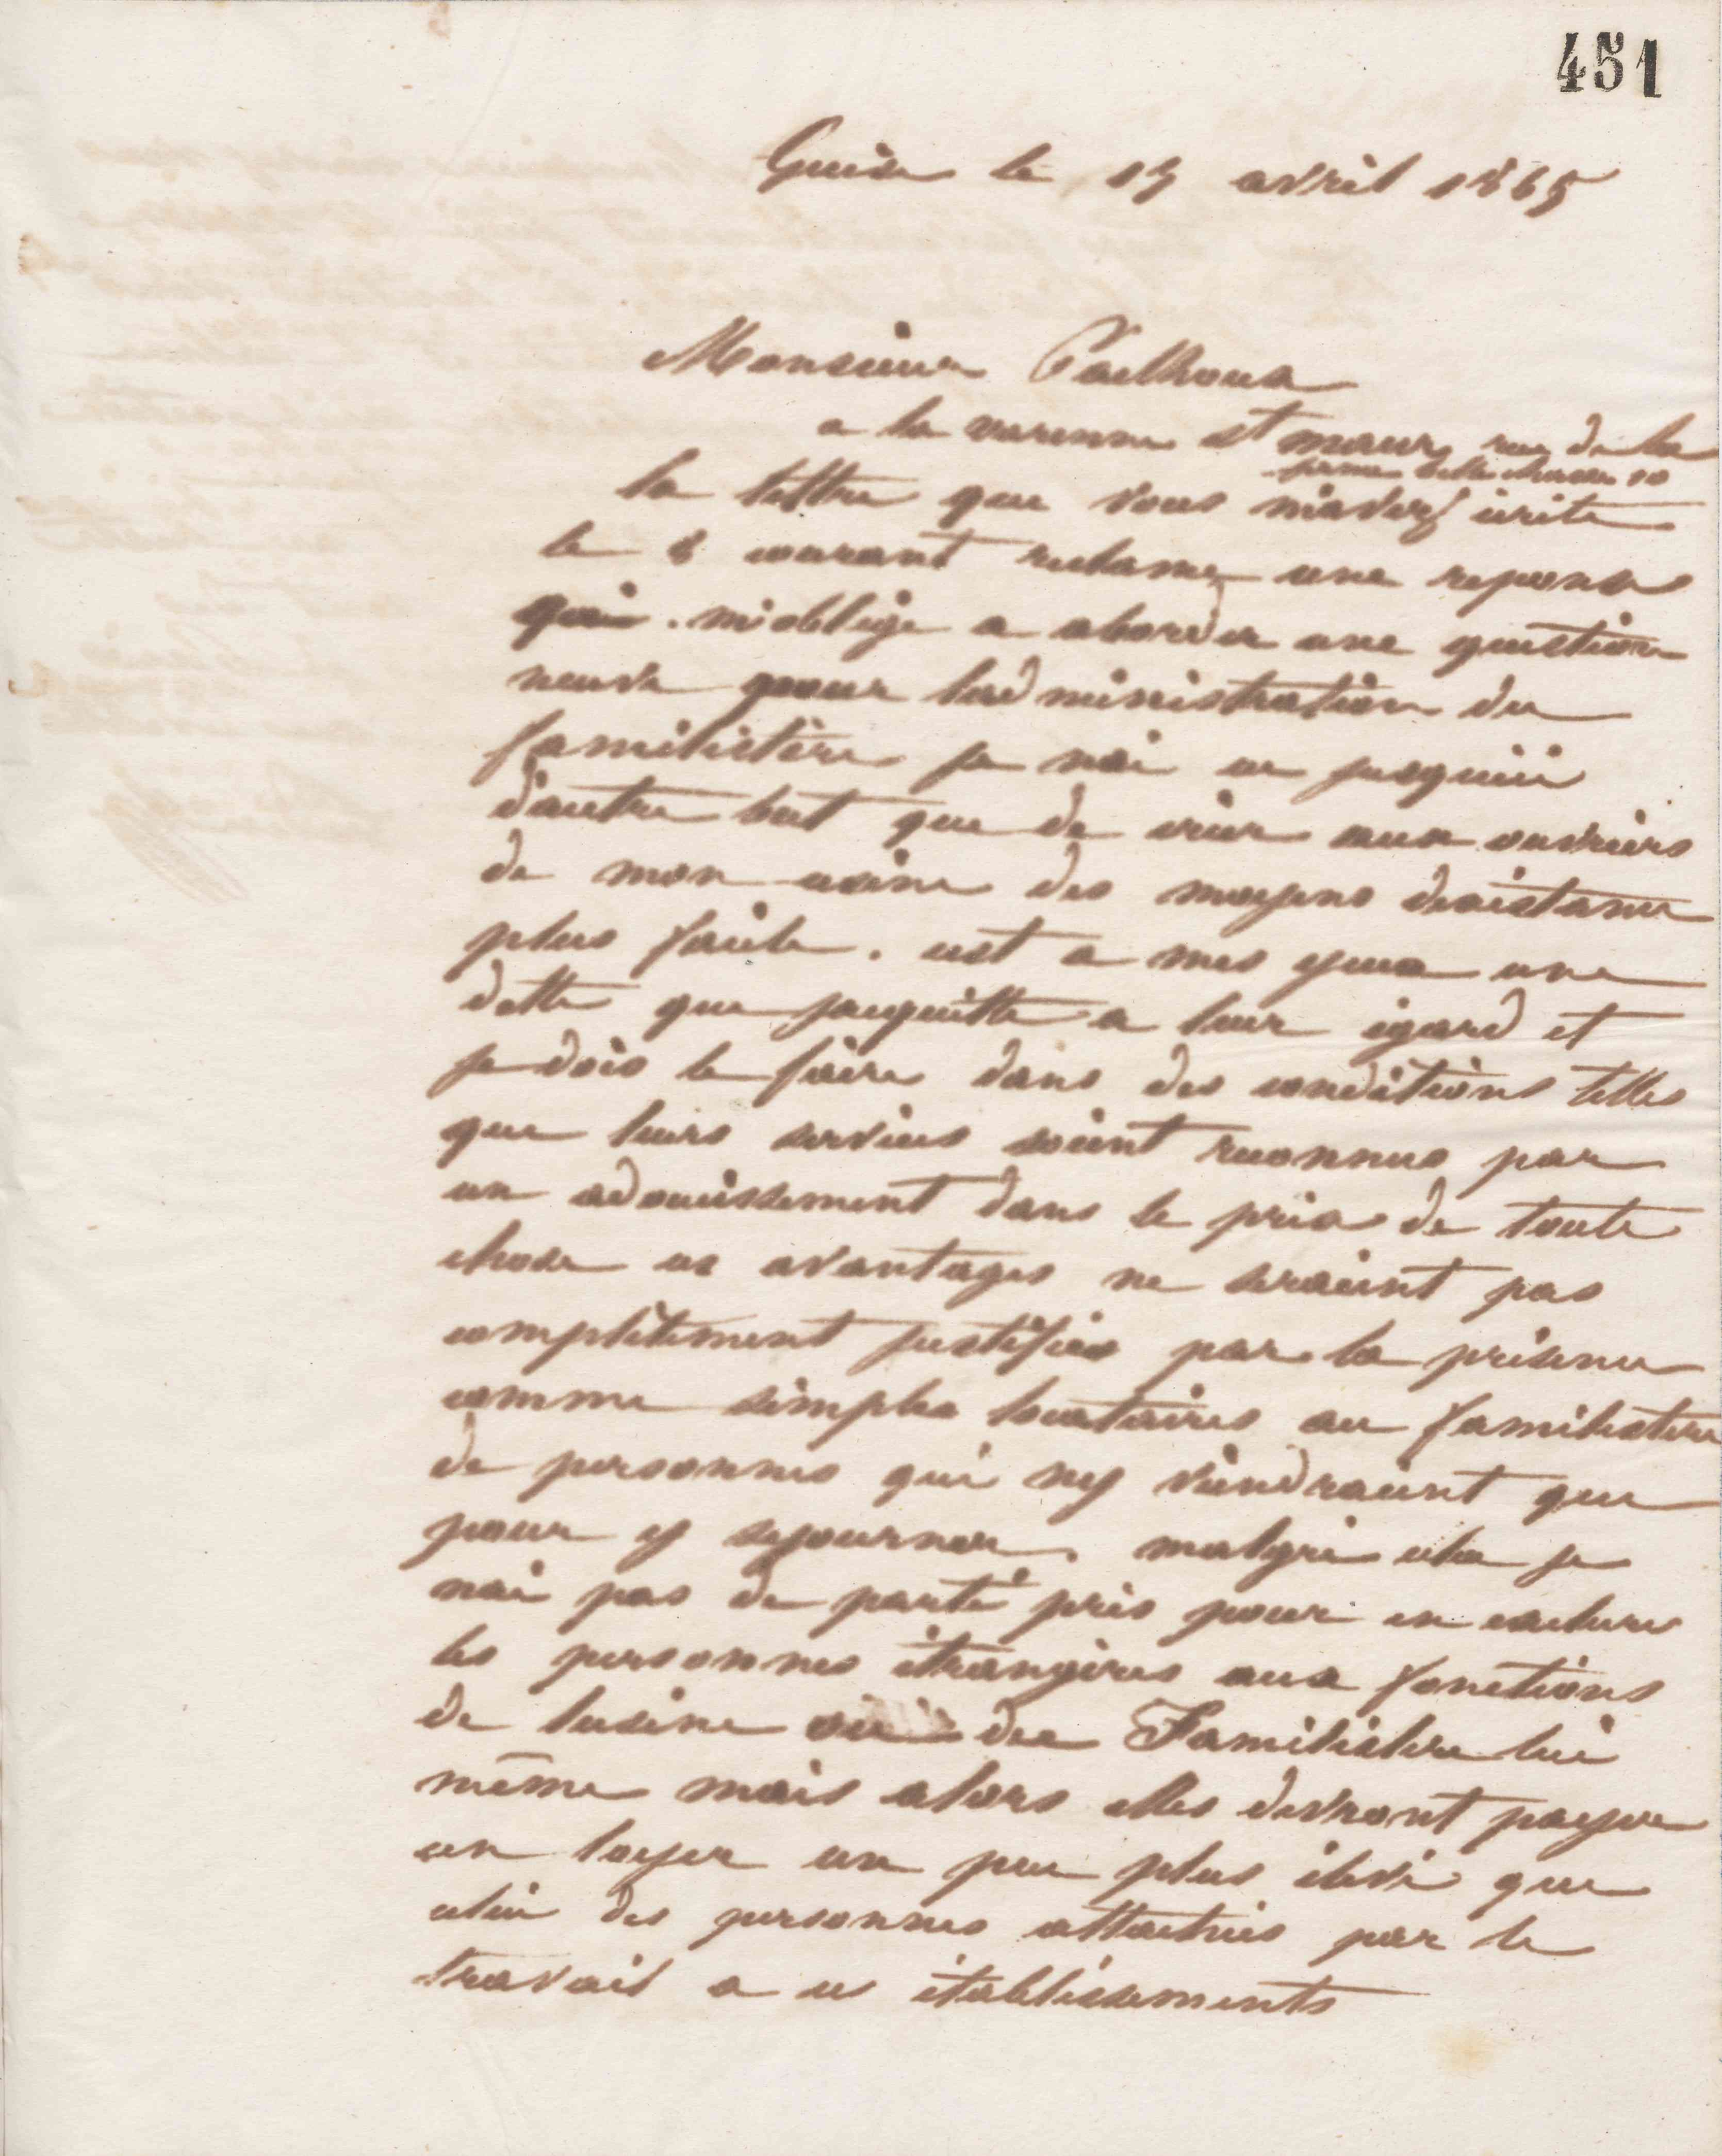 451
Guise le 13 avril 1865
Monsieur Pailhoux
a la varenne St maur rue de la
ferme 10
la lettre que vous m'avez écrite
le 8 courant reclame une reponse
qui m'oblige a aborder une question
neuve pour l'administration du
familistère je nai eu jusquici
d'autre but que de créer aux ouvriers
de mon usine des moyens dexistance
plus facile. cest a mes yeux une
dette que jacquitte a leur égard et
je dois le faire dans des conditions telles
que leurs services soient reconnus par
un adoucissement dans le prix de toute
chose ces avantages ne seraient pas
complètement justifiés par la présence
comme simples locataires au familistère
de personnes qui ny viendraient que
pour y sejourner. malgré cela je
nai pas de parti pris pour en exclure
les personnes étrangères aux fonctions
de lusine ou du Familistère lui
même mais alors elles devront payer
un loyer un peu plus élevé que
celui des personnes attachées par le
travail a ces établissements